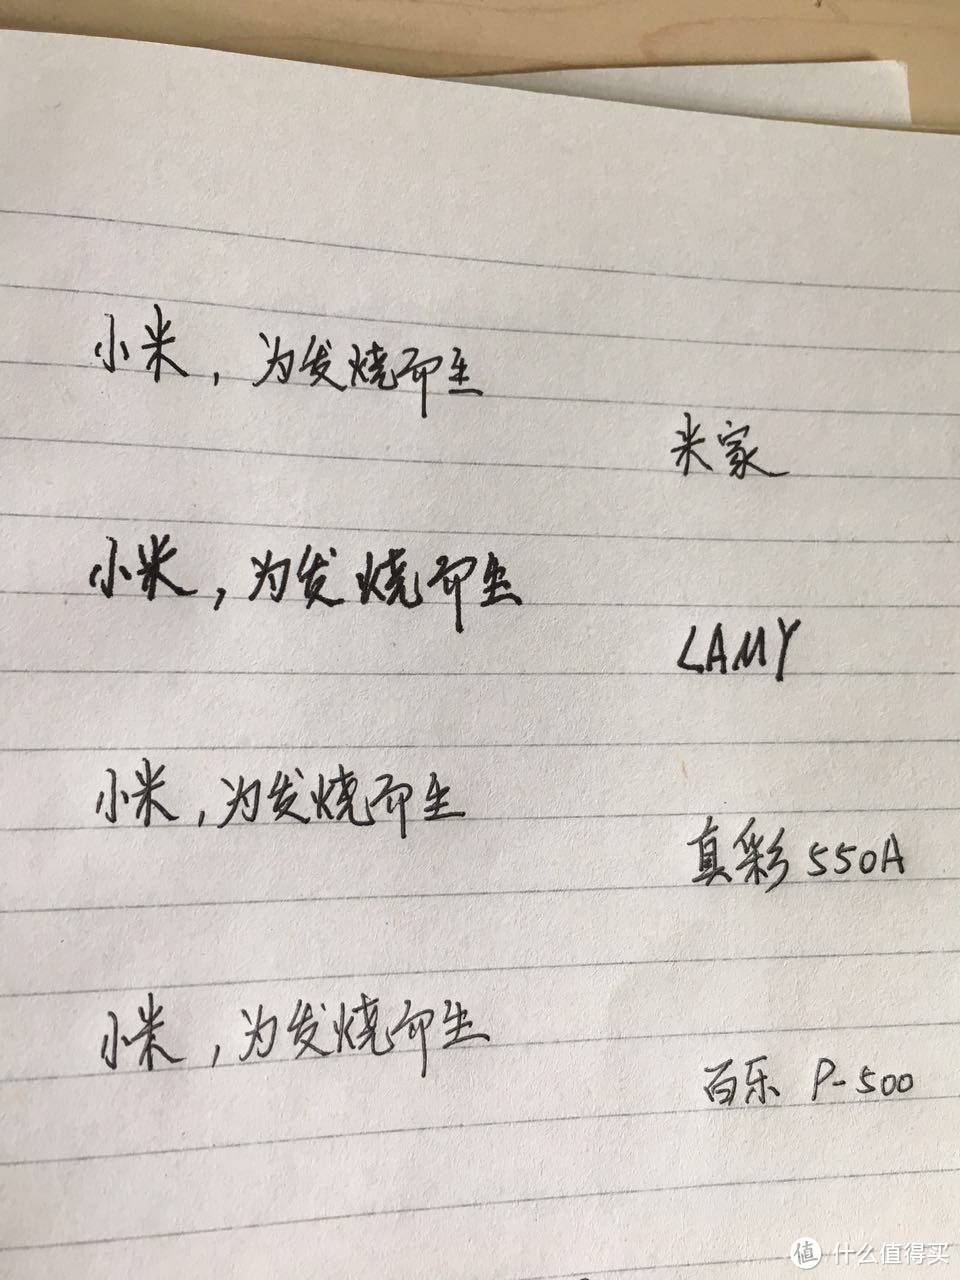 小米，为发烧而生
米家
小米，为发烧而生
LAMY
小米，为发烧而生
真彩 550A
小米，为发烧而生
百乐 P-500
值 什么值得买